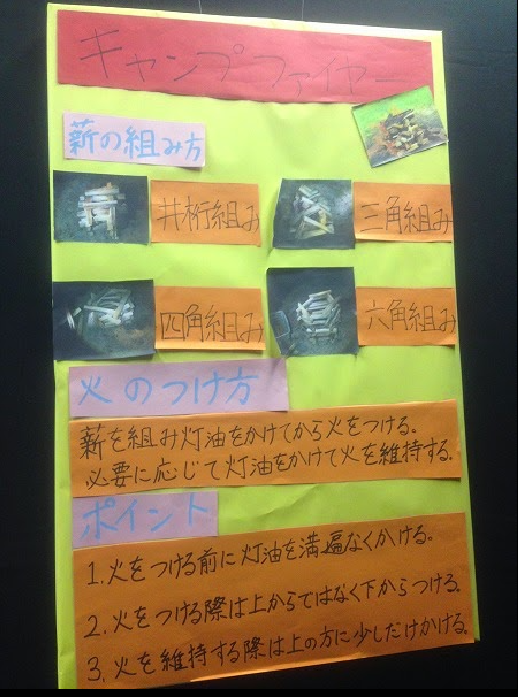 キャンプファイヤー
薪の組み方
井桁組み 三角組み
四角組み 六角組み
火のつけ方
薪を組み灯油をかけてから火をつける。
必要に応じて灯油をかけて火を維持する。
ポイント
1.火をつける前に灯油を満遍なくかける。
2.火をつける際は上からではなく下からつける。
3.火を維持する際は上の方に少しだけかける。